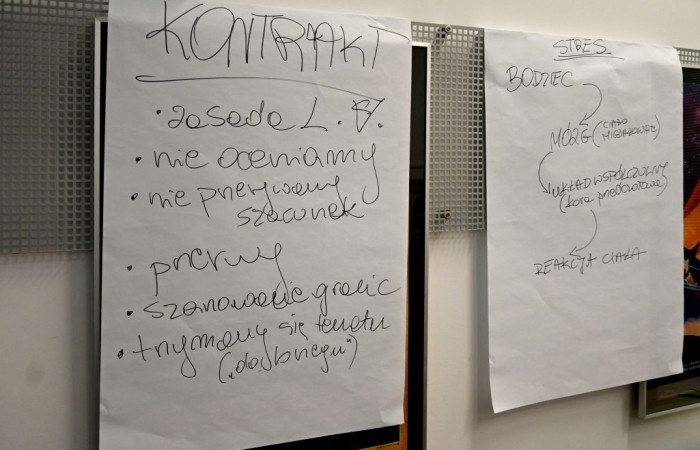 KONTRAKT
• zasada L. V.
• nie oceniamy
• nie przerywamy
szacunek
• przerwy
• szanowanie granic
• trzymamy się tematu
("do brzegu")
STRES
BODZIEC
MÓZG (CIAŁO
MIGDAŁOWATE)
UKŁAD WSPÓŁCZULNY
(kora przedczołowa)
REAKCJA CIAŁA